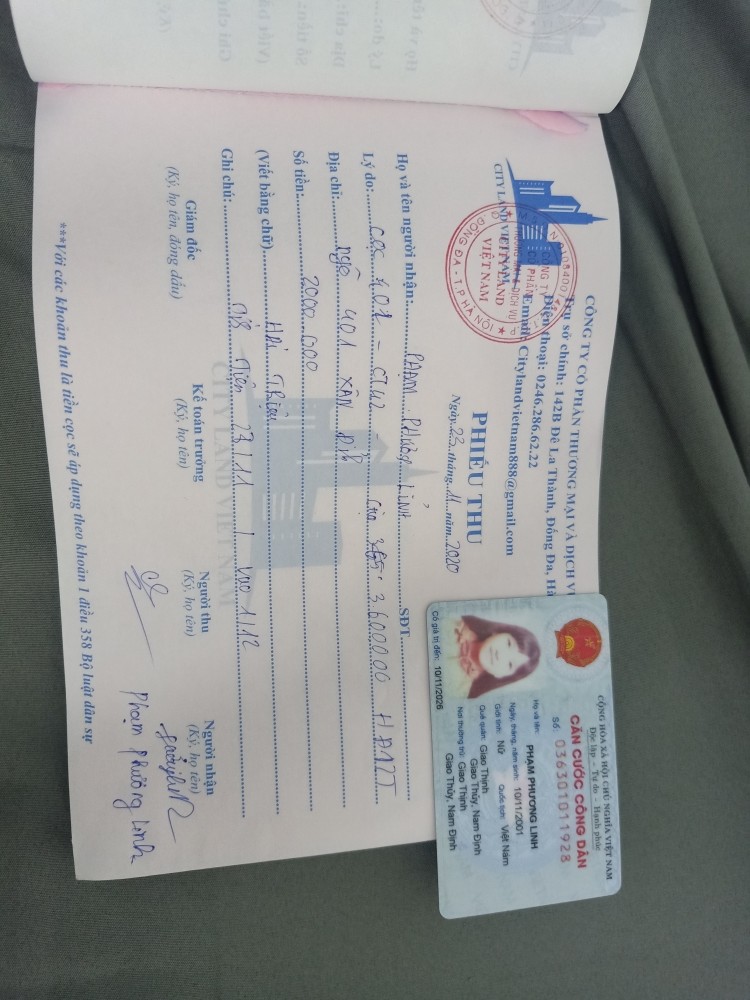 CÔNG TY CỔ PHẦN THƯƠNG MẠI VÀ DỊCH VỤ
Trụ sở chính: 142B Đê La Thành, Đống Đa, Hà
Điện thoại: 0246.286.62.22
Email: Citylandvietnam888@gmail.com
CITY LAND VIETNAM
CITY LAND
VIỆT NAM
ĐỐNG ĐA - T.P HÀ NỘI
PHIẾU THU
Ngày 23 tháng 11 năm 2020
Họ và tên người nhận: PHẠM PHƯƠNG LINH SĐT
Lý do: Cọc 402 - CTM2 3.600.000 HĐ12T
Địa chỉ: ngõ 401 XUÂN ĐỈNH
Số tiền: 2000.000
(Viết bằng chữ) Hai Triệu
Ghi chú: 23/11 / Vào 1/12
Giám đốc
(Ký, họ tên, đóng dấu)
Kế toán trưởng
(Ký, họ tên)
Người thu
(Ký, họ tên)
Người nhận
(Ký, họ tên)
Phạm Phương Linh
***Với các khoản thu là tiền cọc sẽ áp dụng theo khoản 1 điều 358 Bộ luật dân sự
CITY LAND VIET NAM
CỘNG HÒA XÃ HỘI CHỦ NGHĨA VIỆT NAM
Độc lập – Tự do – Hạnh phúc
CĂN CƯỚC CÔNG DÂN
Số 036301011928
Họ và tên: PHẠM PHƯƠNG LINH
Ngày, tháng, năm sinh: 10/11/2001
Giới tính: NỮ Quốc tịch: Việt Nam
Quê quán: Giao Thịnh
Giao Thủy, Nam Định
Nơi thường trú: Giao Thịnh
Giao Thủy, Nam Định
Có giá trị đến: 10/11/2026